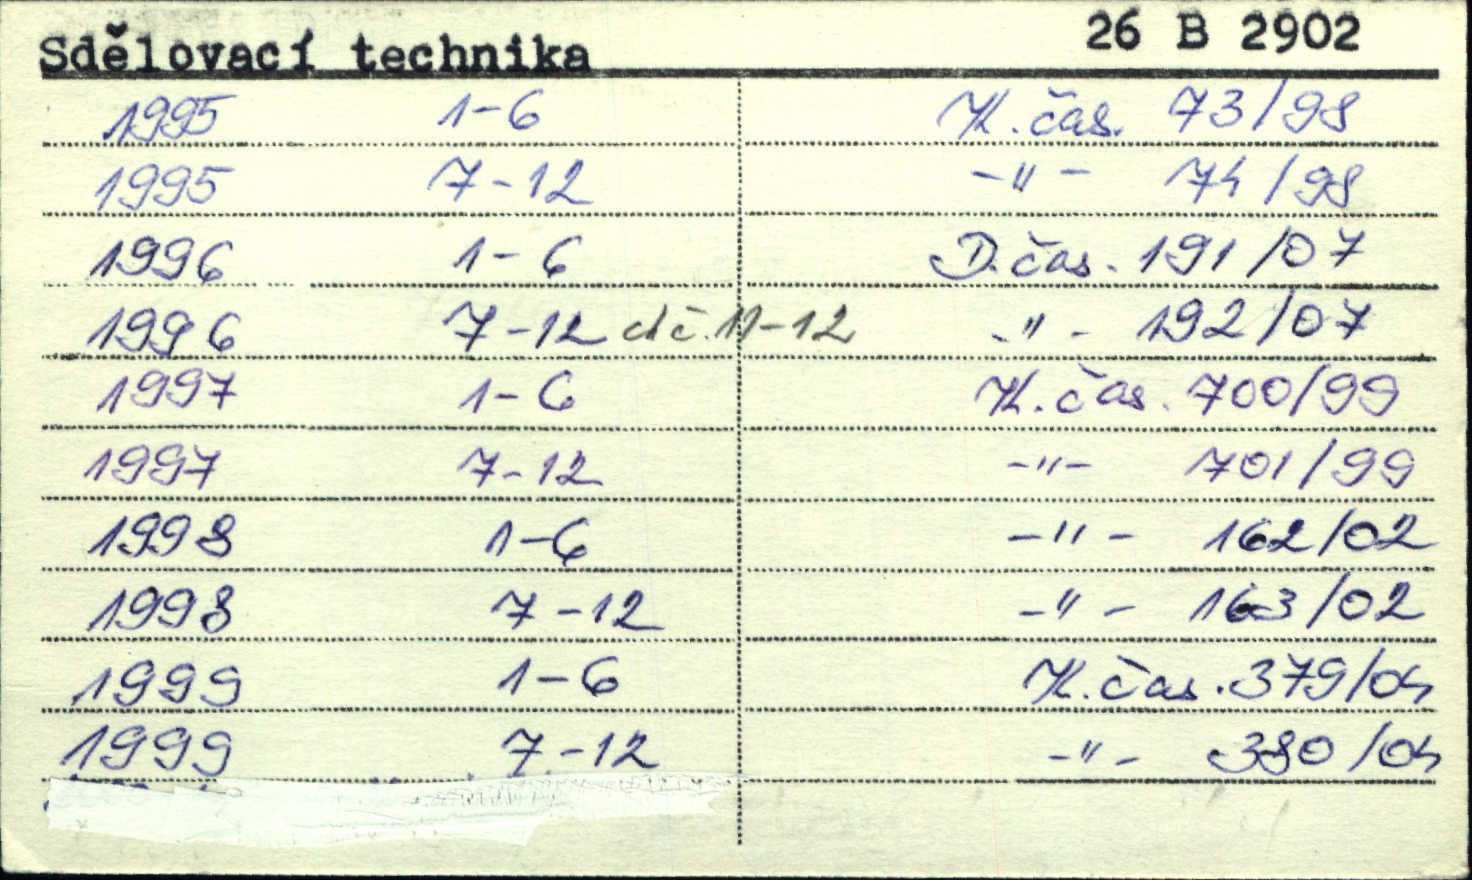 Sdělovací technika 26 B 2902
1995 1-6 K. čas. 73/98
1995 7-12 -"- 74/98
1996 1-6 D. čas. 191/07
1996 7-12 č. 11-12 -"- 192/07
1997 1-6 K. čas. 700/99
1997 7-12 -"- 701/99
1998 1-6 -"- 162/02
1998 7-12 -"- 163/02
1999 1-6 K. čas. 379/04
1999 7-12 -"- 380/04